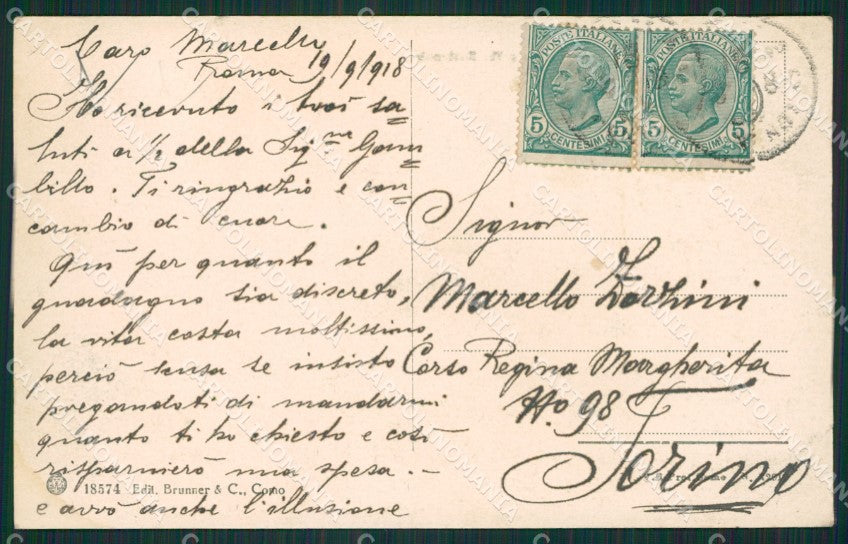 Caro Marcello
Roma 19/9/918
Ho ricevuto i tuoi sa=
luti a ½ della Sig.ne Gam
billo. Ti ringrazio e con=
cambio di cuore.
Qui per quanto il
guadagno sia discreto,
la vita costa moltissimo,
perciò scusa se insisto
pregandoti di mandarmi
quanto ti ho chiesto e così
risparmierò una spesa. -
e avrò anche l'illusione
18574 Edit. Brunner & C., Como
POSTE ITALIANE
5 CENTESIMI 5
POSTE ITALIANE
5 CENTESIMI 5
Signor
Marcello
Corso Regina Margherita
No. 98
Torino
CARTOLINOMANIA